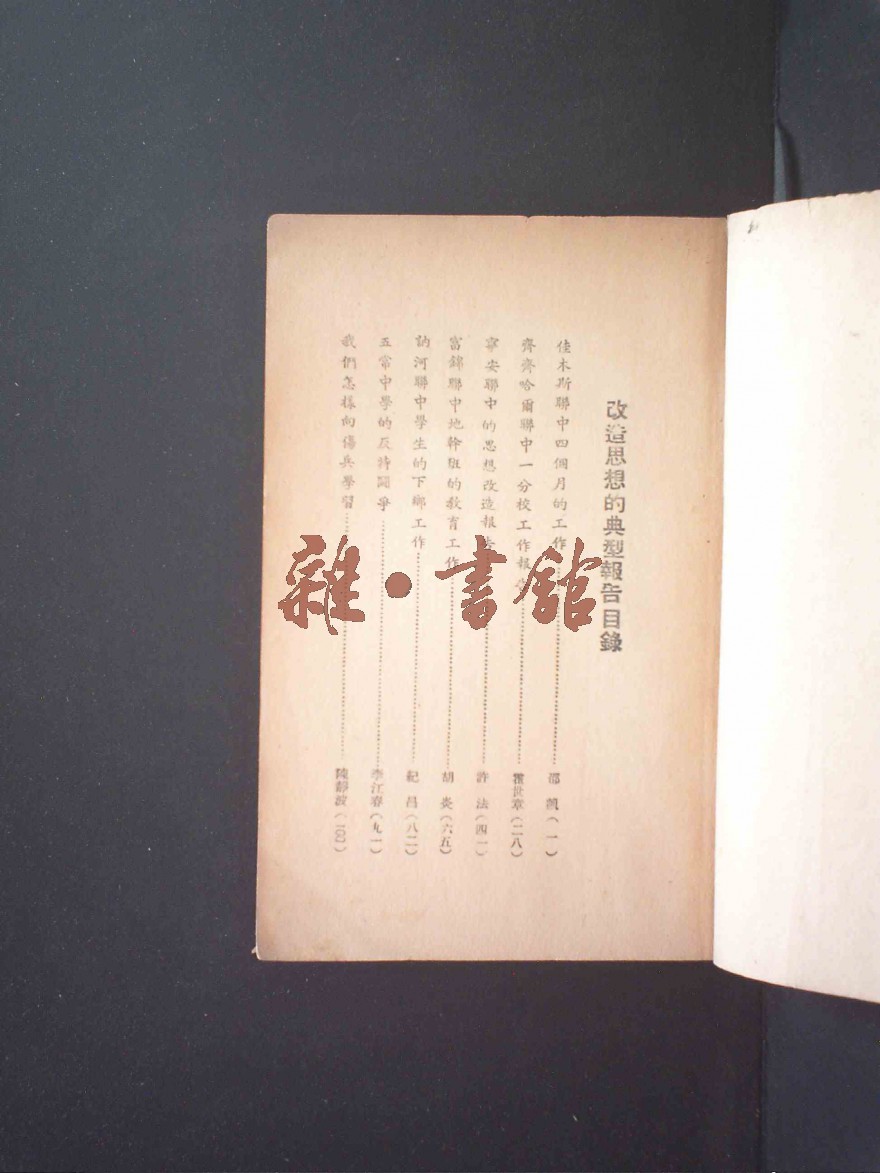 改造思想的典型報告目錄
佳木斯聯中四個月的工作 邵 凱（一）
齊齊哈爾聯中一分校工作報告 霍世章（二八）
寧安聯中的思想改造報告 許 法（四一）
富錦聯中地幹班的教育工作 胡 炎（六五）
訥河聯中學生的下鄉工作 紀 昌（八二）
五常中學的反特鬪爭 李江春（九一）
我們怎樣向傷兵學習 陳靜波（一〇〇）
雜·書館